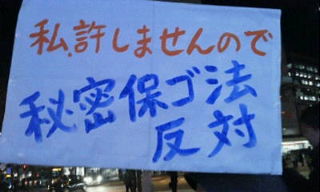 私、許しませんので
秘密保ゴ法
反対